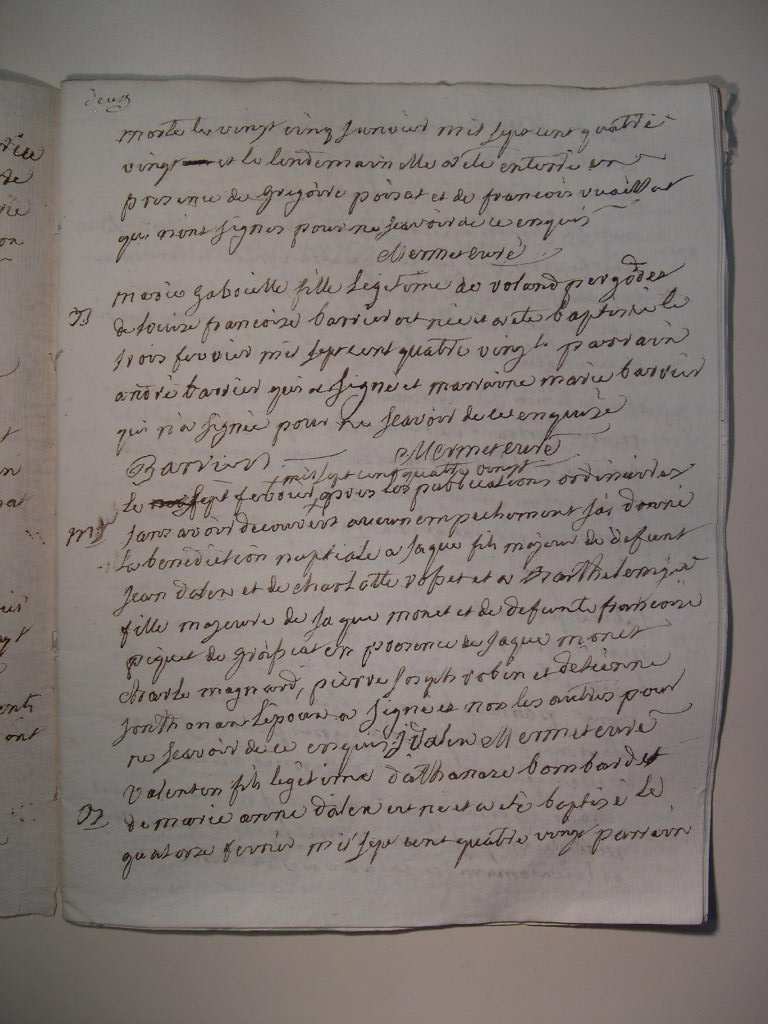 deux
morte le vingt cinq janvier mil sept cent quatre
vingt et le lendemain elle a ete enterré en
presence de gregoire poisat et de francois vuaillat
qui n'ont signes pour ne scavoir de ce enquis
Mermet curé
B
marie gabrielle fille legitime de voland pergod et
de louise francoise barrier est née et a ete baptisée le
trois fevrier mil sept cent quatre vingt parrain
andré barrier qui a signe et marraine marie barrier
qui n'a signée pour ne scavoir de ce enquise
Barrier Mermet curé
mil sept cent quatre vingt
M
le sept fevrier apres les publications ordinaires
sans avoir decouvert aucun empechement j'ai donné
la benediction nuptiale a jaque fils majeur de defunt
jean dalex et de charlotte et a barthelemie
fille majeure de jaque monet et de defunte francoise
piquet de en presence de jaque monet
charle magnard, pierre joseph robin et d'etienne
l'epoux a signé et non les autres pour
ne scavoir de ce enquis J Dalex Mermet curé
B
valentin fils legitime d'athanaze bombard et
de marie anne dalex est né et a eté baptizé le
quatorze fevrier mil sept cent quatre vingt parrain